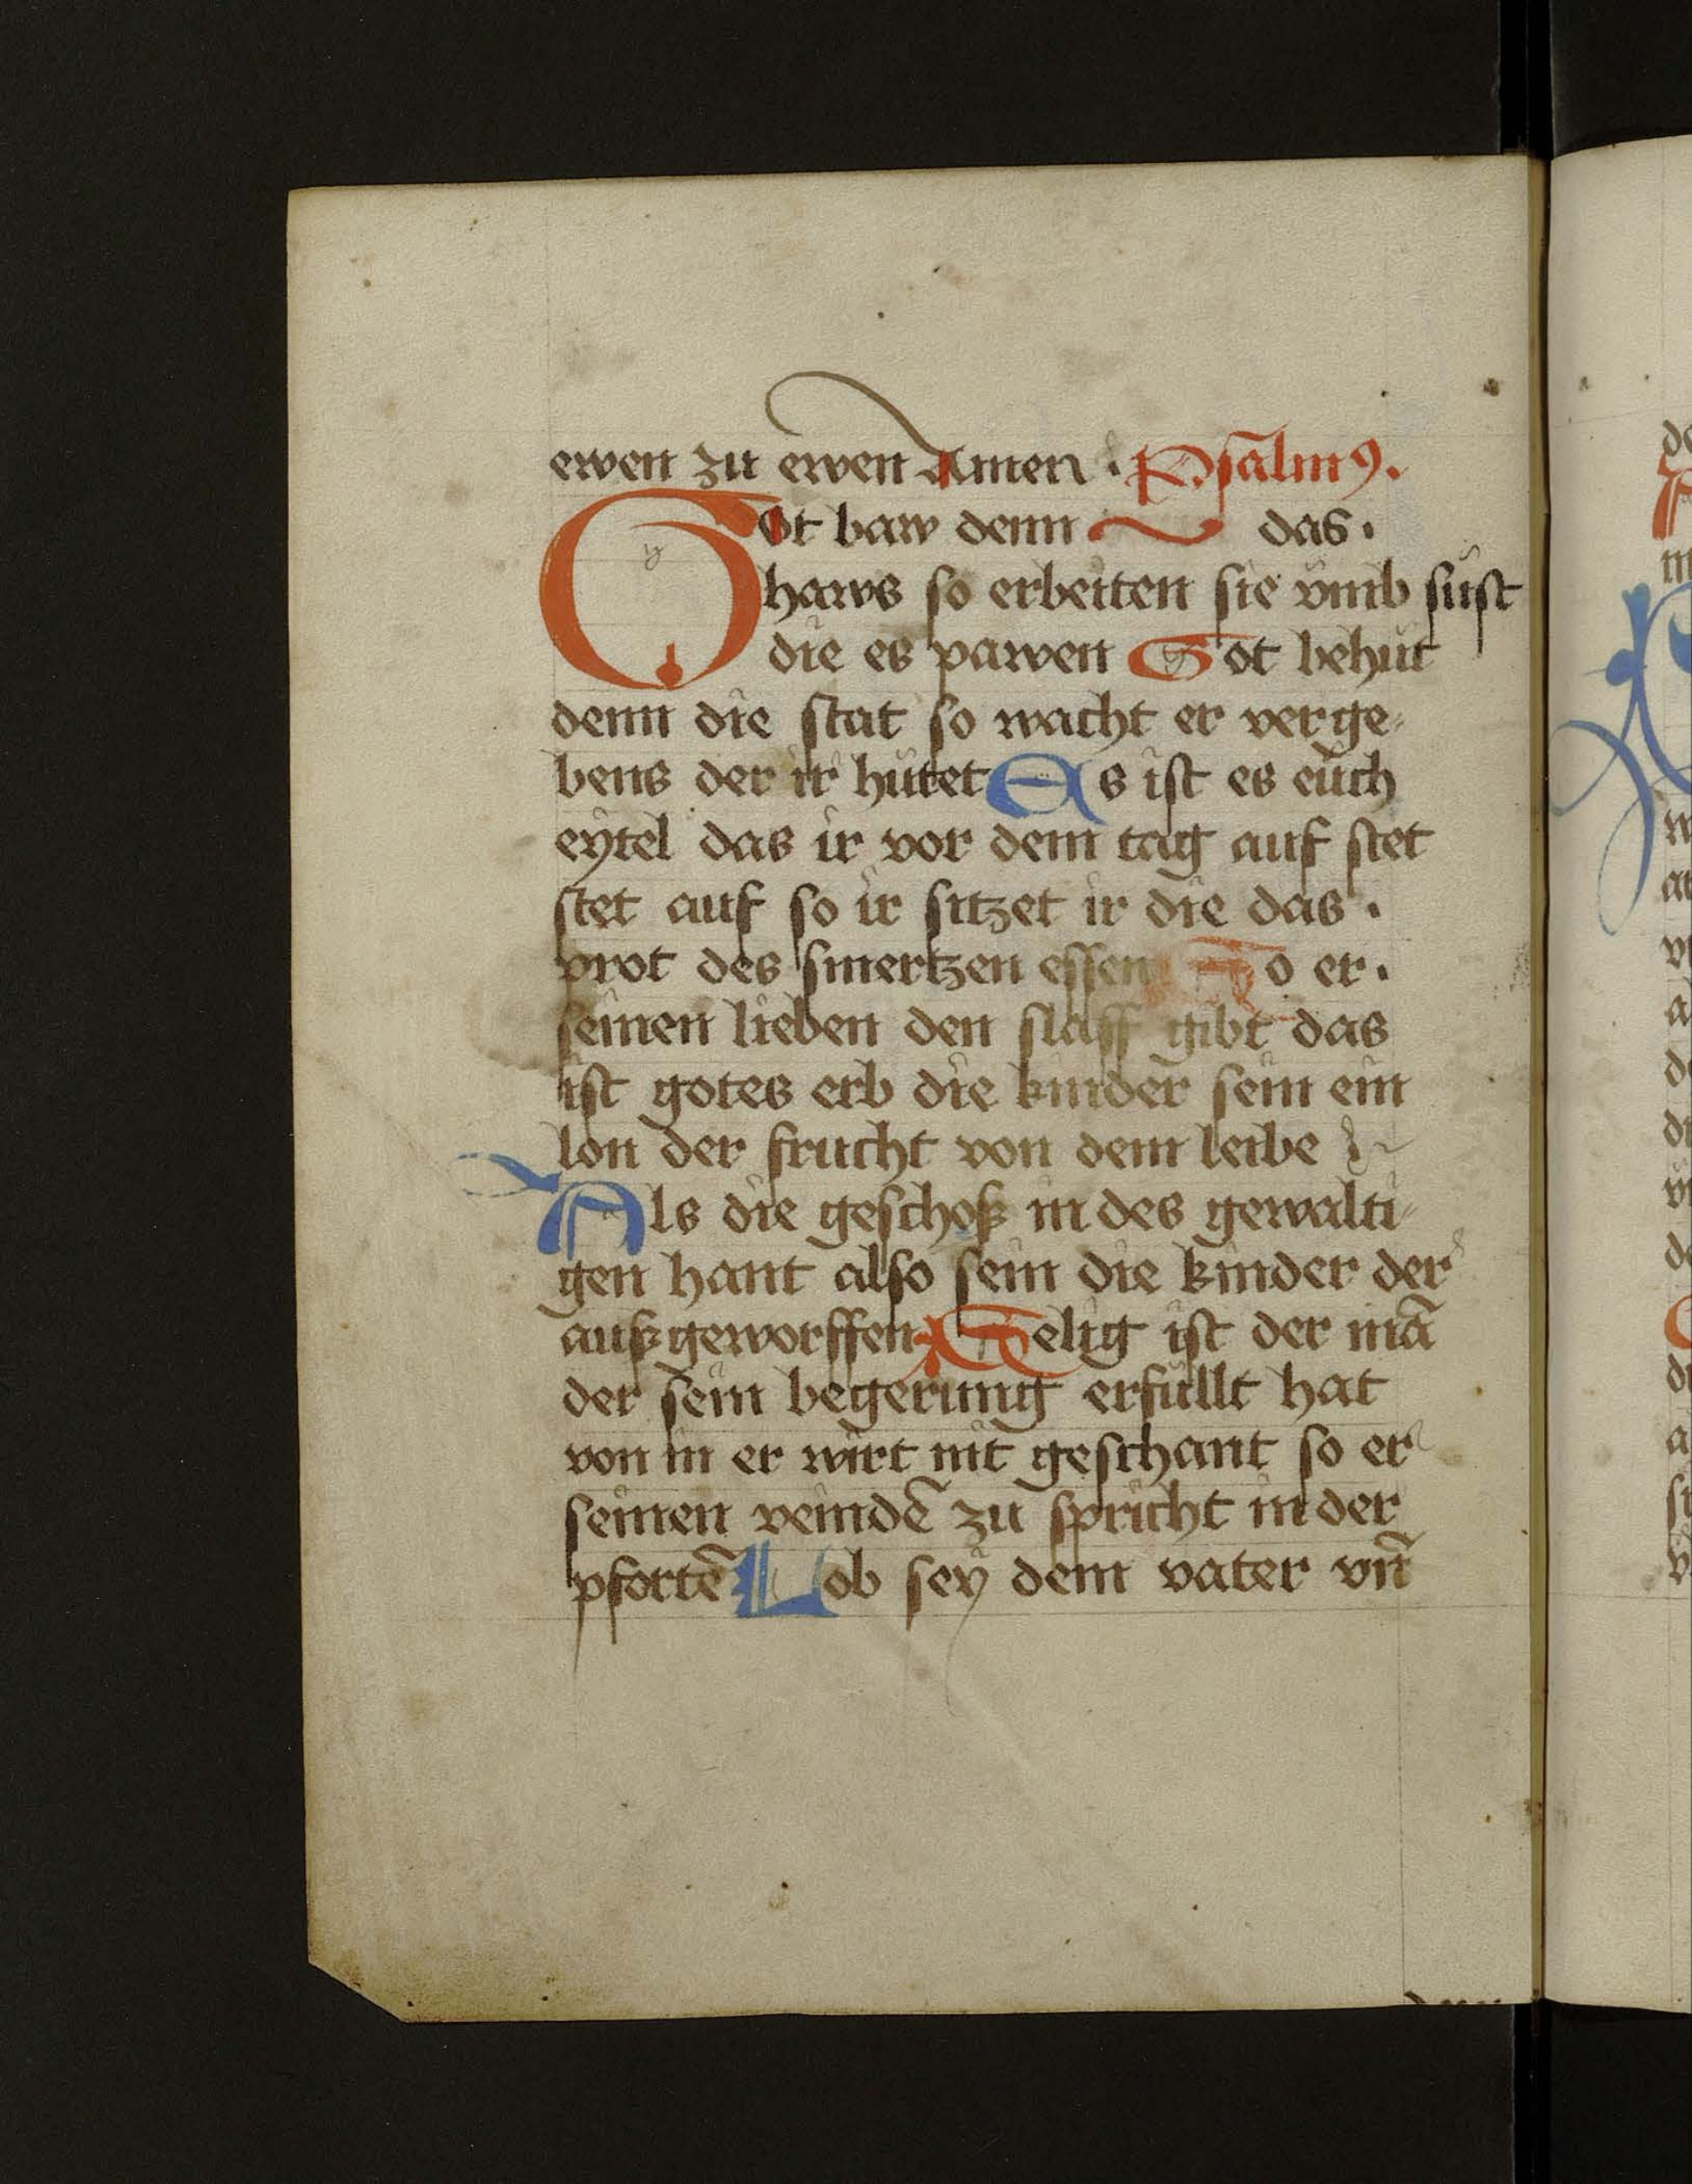 ewen zu ewen Amen · Psalm9.
Got baw denn das ·
haws so erbeiten sie vmb süst
die es pawen Got behüt
denn die stat so wacht er verge-
bens der ir hütet Es ist es euch
eytel das ir vor dem tag auf stet
stet auf so ir sitzet ir die das ·
prot des smertzen essen So er ·
seinen lieben den slaff gibt das
ist gotes erb die kinder sein ein
lon der frucht von dem leibe
Als die geschoß in des gewalti-
gen hant also sein die kinder der
außgeworffen Selig ist der mā
der sein begerung erfüllt hat
von in er wirt nit geschant so er
seinen veindē zu spricht in der
pfortē Lob sey dem vater vn̄